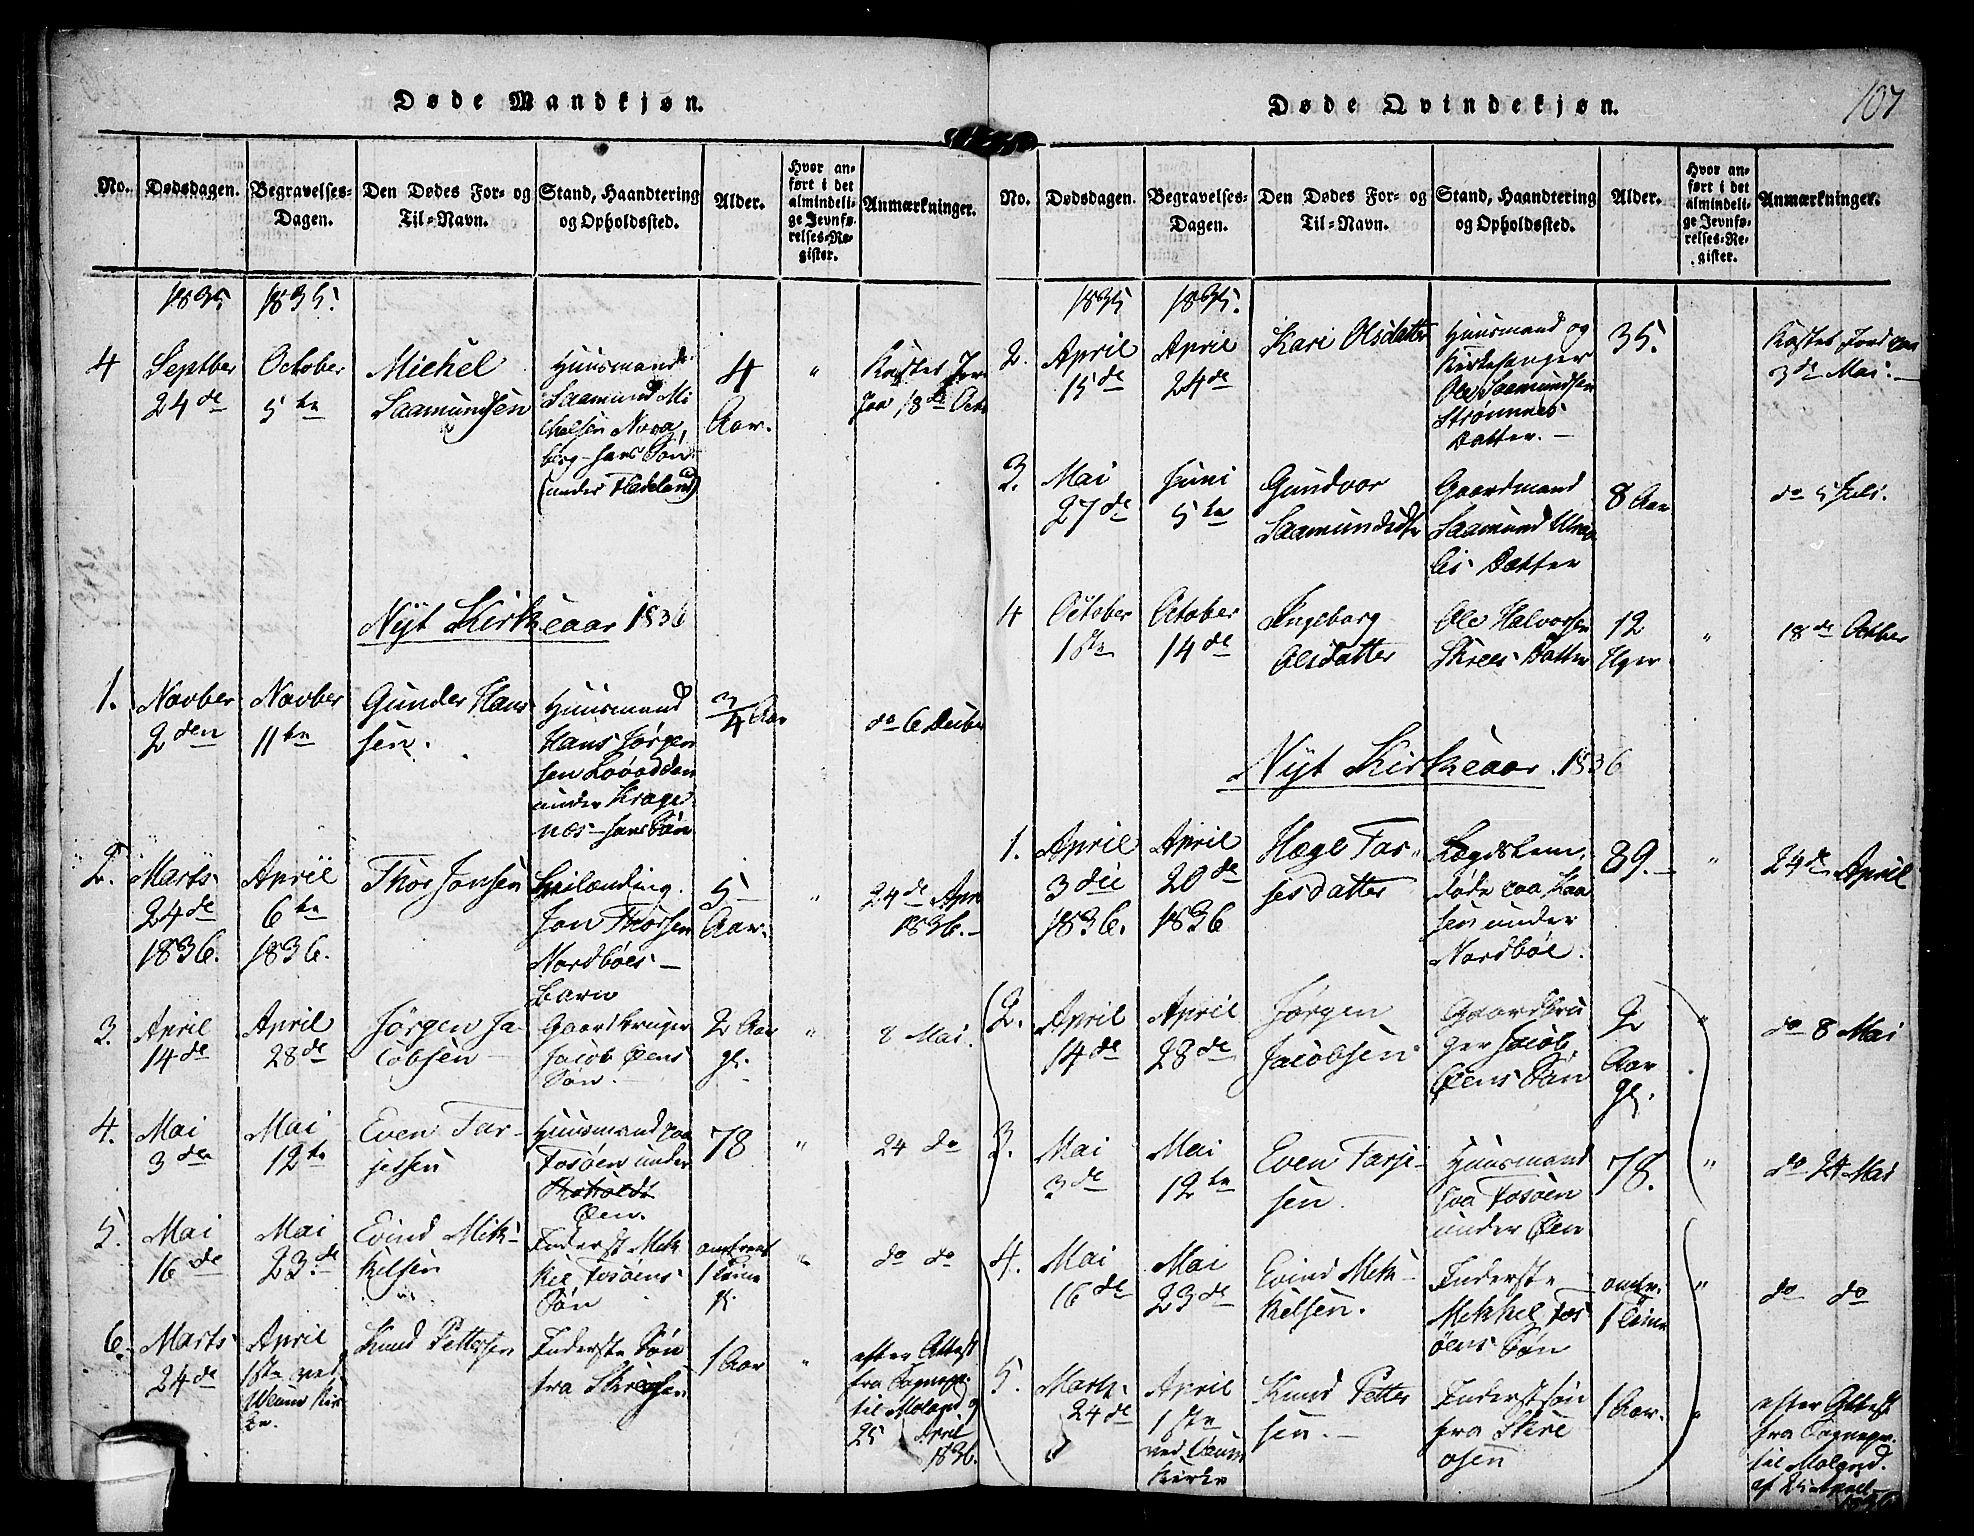 Døde Mandkjøn.
No.
Dødsdagen.
Begravelses-
Dagen.
Den Dødes For- og
Til-Navn.
Stand, Haandtering
og Opholdssted.
Alder.
Hvor an-
ført i det
almindeli-
ge Jevnfø-
relses-Re-
gister.
Anmærkninger.
1835
1835.
4
Septber
24de
October
5te
Michel
Saamundsen
Huusmand
Saamund Mi
chelsen
berg hans Søn
(under Fladeland)
4
Aar.
"
Kastet Jord
paa 18de Octo
Nyt Kirkeaar 1836
1.
Novber
2den
Novber
11te
Gunder Hans
sen.
Huusmand
Hans Jørgen
sen
under Krage
næs - hans Søn
3/4 Aar
do 6 Decbr
2.
Marts
24de
1836.
April
6te
1836.
Thor Jonsen
Leilænding
Jon Thorsen
Nordböes
barn
5
Aar.
"
24de Apr
1836.
3.
April
14de
April
28de
Jörgen Ja-
cobsen
Gaardbruger
Jacob Öens
Sön.
2 Aar
gl.
"
8 Mai.
4.
Mai
3die
Mai
12te
Even Tar-
jessen
Huusmand paa
Tosöen under
Öen.
78
"
24 do
5.
Mai
16de
Mai
23de
Evind Mik-
kelsen
Inderst Mik
kel Tosöens
Sön
omtrent
1 Time
gl.
"
do do
6.
Marts
24de
April
1ste ved
Kir
ke.
Knud Pettersen
Inderste Sön
fra Skreosen
1 Aar
"
efter Attest
fra Sognepr.
til Moland
25 April
1836.
Døde Qvindekjøn.
107
No.
Dødsdagen.
Begravelses-
Dagen.
Den Dødes For- og
Til-Navn.
Stand, Haandtering
og Opholdssted.
Alder.
Hvor an-
ført i det
almindeli-
ge Jevnfø-
relses-Re-
gister.
Anmærkninger.
1835
1835.
2.
April
15de
April
24de
Kari Olsdatter
Huusmand og
Kirkesanger
Ole Saamundsen
Strømnes
Datter.
35.
Kastet Jord paa
3de Mai.
3.
Mai
27de
Juni
5te
Gundvor
Saamundsdtr
Gaardmand
Saamund
Datter
8 Aar
do 5 Juli.
4
October
1ste
October
14de
Ingeborg
Olsdatter
Ole Halvorsen
Skrees Datter
12
Uger
"
18de Octber
Nyt Kirkeaar 1836
1.
April
3die
1836.
April
20de
1836
Hæge Tar-
jesdatter
Lægdslem,
døde paa Laa
sen under
Nordböe.
89.
"
24de April
2.
April
14de
April
28de
Jörgen
Jacobsen
Gaardbru
ger Jacob
Öens Sön
2
Aar
gl.
"
do 8 Mai
3.
Mai
3de
Mai
12te
Even Tarje-
sen
Huusmand
paa Tosöen
under Öen
78.
"
do 24 Mai
4.
Mai
16de
Mai
23de
Evind Mik-
kelsen.
Inderste
Mekkel Tos
öens Sön
omtr.
1 Time
"
do do
5.
Marts
24de
April
1ste
ved
Kirke
Knud Petter
sen.
Inderst sön
fra Skre
osen
1 Aar.
"
efter Attest
fra Sognepr.
til Moland.
af 25 April
1836